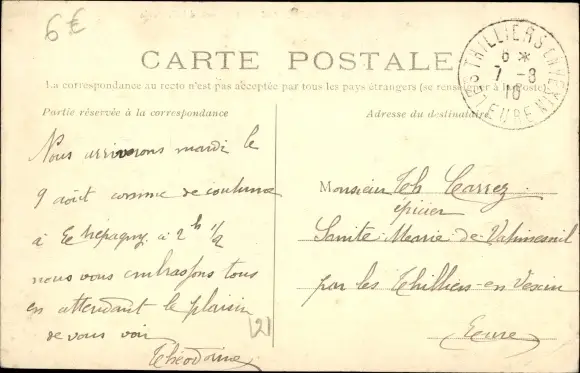 6€
CARTE POSTALE
La correspondance au recto n'est pas acceptée par tous les pays étrangers (se renseigner à la Poste)
Partie réservée à la correspondance
Adresse du destinataire
LES THILLIERS EN VEXIN
6 *
7 - 8
10
EURE
Nous arriverons mardi le
9 août comme de coutume
à Etrépagny à 2 h 1/2
nous vous embrassons tous
en attendant le plaisir
de vous voir
Monsieur Th Carrez
épicier
Sainte Marie de Vatimesnil
par les Thilliers-en Vexin
Eure
(2)